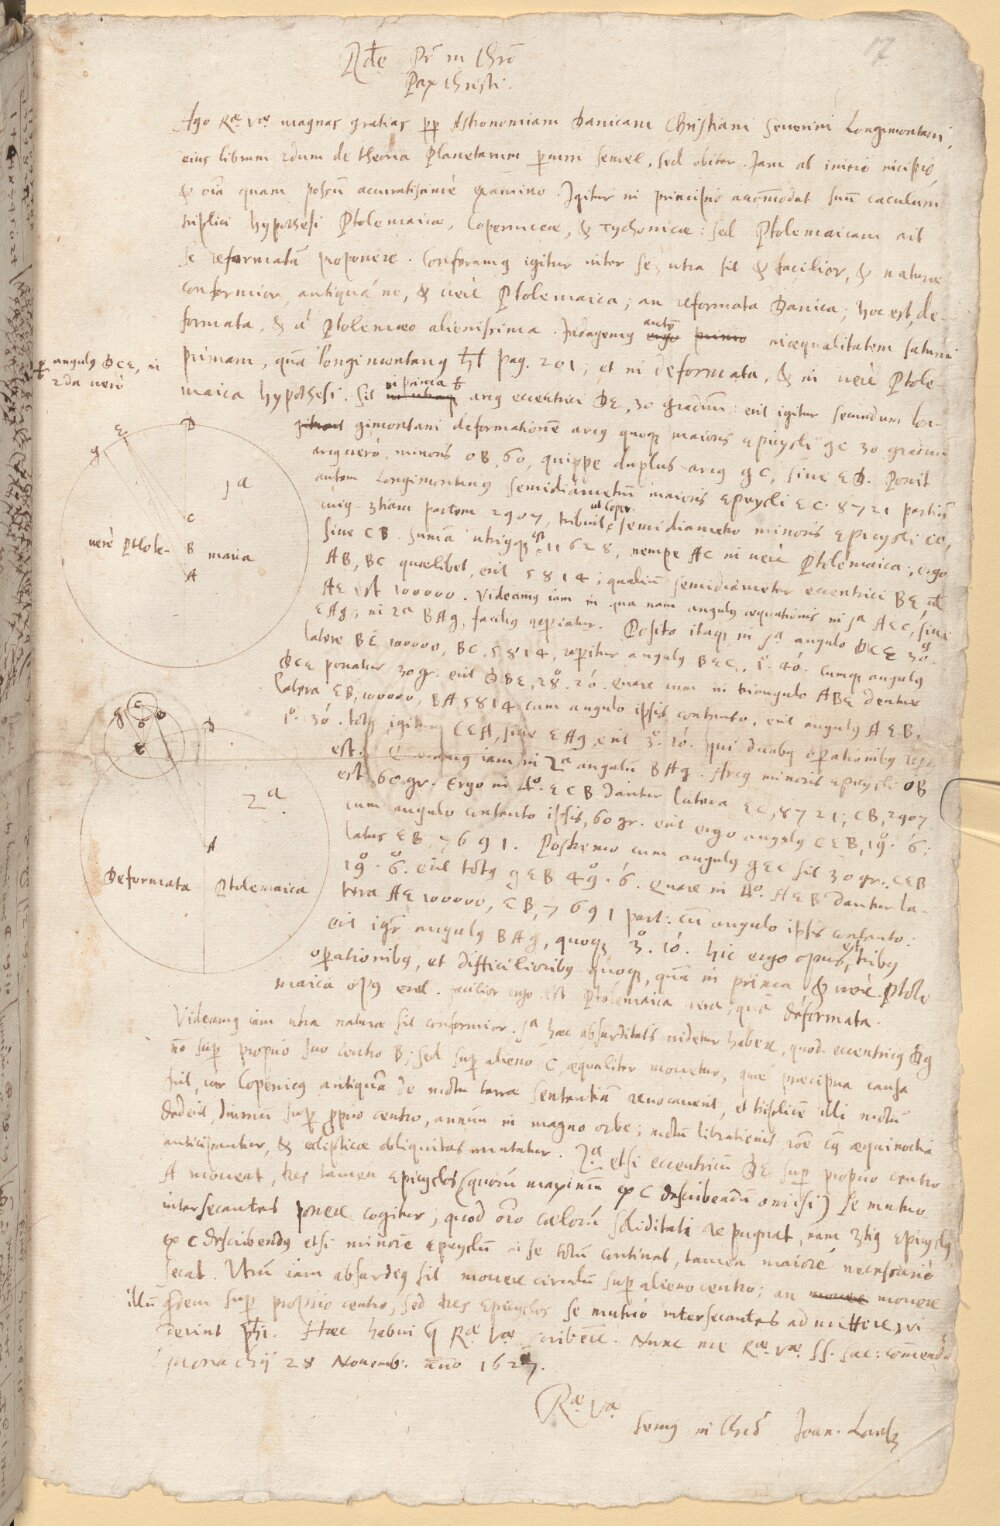 17
Rde Pr in Chro
Pax Christi.
Ago Rae Vae magnas gratias pp Astronomiam Danicam Christiani Severini Longomontani,
eius librum 2dum de theoria Planetarum percurri semel, sed obiter. Jam ab initio incipio
& oia quam possum accuratissime examino. Igitur in principio accomodat suum caculum
triplici hypothesi Ptolemaicae, Coperniceae, & Tychonicae: sed Ptolemaicam ait
se reformatam proponere. Conferamus igitur inter se, utra sit & facilior, & naturae
conformior, antiqua ne, & vere Ptolemaica; an reformata Danica; hoc est, de-
formata, & a Ptolemaeo alienissima. Indagemus autem inaequalitatem saturni
primam, qua Longimontanus pag. 201, et in deformata, & in vere Ptole-
maica hypothesi. Sit in prima arcus eccentrici DE, 30 graduum: erit igitur secundum Lon-
angulus DCE, in
2da vero
gimontani deformationem arcus quoque maioris epicycli gC 30 graduum
arcus vero minoris OB, 60, quippe duplus arcus gC, sive ED. Ponit
autem Longimontanus semidiametrum maioris epicycli EC 8721 partium
cuius 3tiam partem 2907, tribuit ut Coper. semidiametro minoris epicycli CO,
sive CB. Summa utriusque est 11628, nempe AC in vere Ptolemaica; ergo
AB, BC quaelibet, erit 5814; qualium semidiameter eccentrici BE, vel
AE est 100000. Videamus iam in qua nam angulus aequationis in 1a AEC, sive
EAg; in 2a BAg, facilius reperiatur. Posito itaque in 1a angulo DCE 30°.
latere BE 100000, BC, 5814, reperitur angulus BEC, 1°. 40. Cumque angulus
DCE ponatur 30 gr. erit DBE, 28°. 20. Quare cum in triangulo ABE dentur
latera EB, 100000, BA 5814 cum angulo ipsis contento, erit angulus AEB,
1°. 30. totus igitur CEA, sive EAg, erit 3°. 10. qui duabus operationibus
est. Quaeramus iam in 2a angulum BAg. Arcus minoris epicycli OB
est 60 gr. Ergo in 4°. ECB dantur latera EC, 8721; CB, 2907
cum angulo contento ipsis, 60 gr. erit ergo angulus CEB, 19°. 6.
latus EB, 7691. Postremo cum angulus gEC sit 30 gr. CEB
19°. 6. erit totus gEB 49°. 6. Quare in 4°. AEB dantur la-
tera AE 100000, EB, 7691 part: cum angulo ipsis contento:
erit igr angulus BAg, quoque 3°. 10. hic ergo opus est tribus
operationibus, et difficilioribus quoque, quam in prima & vere Ptole
maica opus erat. facilior ergo est Ptolemaica vera, quam deformata.
D
E
g
1a
C
vere Ptole- B maica
A
g
C
B
O
E
D
2a
A
Deformata Ptolemaica
Videamus iam utra naturae sit conformior. 1a haec absurditatis videtur habere, quod eccentricus Dg
non super proprio suo centro B; sed super alieno C, aequaliter movetur, quae praecipua causa
fuit, cur Copernicus antiquam de motu terrae sententiam renovaverit, et triplicem illi motum
dederit, diurnum super proprio centro, annuum in magno orbe; motum librationis, roe cuius aequinoctia
anticipentur, & eclipticae obliquitas mutatur. 2a etsi eccentricum DE super proprio centro
A moveat, tres tamen epicyclos (quorum maximum ex C describendum omisi) se mutuo
intersecantes ponere cogitur; quod oro coelorum soliditati repugnat, nam 3tius epicyclus
ex C describendus etsi minorem epicyclum in se totum contineat, tamen maiorem necessario
secat. Utrum iam absurdius sit movere circulum super alieno centro; an movere
illum quidem super proprio centro, sed tres epicyclos se mutuo intersecantes admittere, vi
derint phi. Haec habui q Rae Vae scriberem. Nunc me Rae Vae SS. sac: comendo
Monachij 28 Novemb. anno 1627.
Rae Vae
Servus in Chro Joan. Lantz